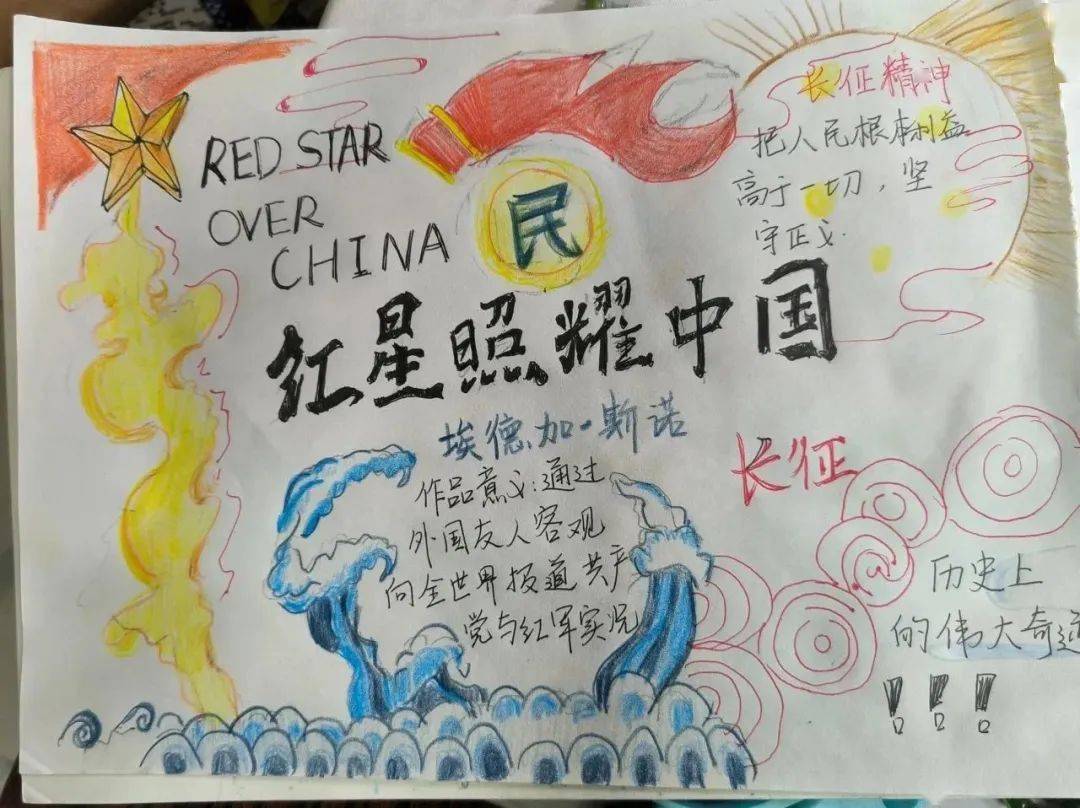 RED STAR
OVER
CHINA
民
长征精神
把人民根本利益
高于一切，坚
守正义.
红星照耀中国
埃德加·斯诺
作品意义:通过
外国友人客观
向全世界报道共产
党与红军实况
长征
历史上
的伟大奇迹
!!!